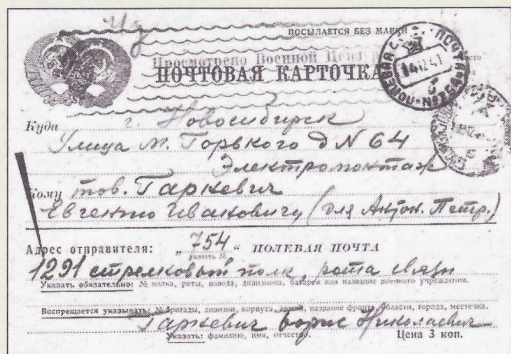 Из
ПОСЫЛАЕТСЯ БЕЗ МАРКИ
Просмотрено Военной
ПОЧТОВАЯ КАРТОЧКА
14 12 41
Куда г. Новосибирск
Улица М. Горького д N 64
Электромонтаж
Кому тов. Гаркевич
Евгению Ивановичу (для Антон. Петр.)
Адрес отправителя: „754“ ПОЛЕВАЯ ПОЧТА
указать №
1291 стрелковый полк, рота связи
Указать обязательно: № полка, роты, взвода, дивизиона, батареи или название военного учреждения.
Воспрещается указывать: № бригады, дивизии, корпуса, армии, название фронта, области, города, местечка.
Гаркевич Борис Николаевич
Указать: фамилию, имя, отчество.
Цена 3 коп.